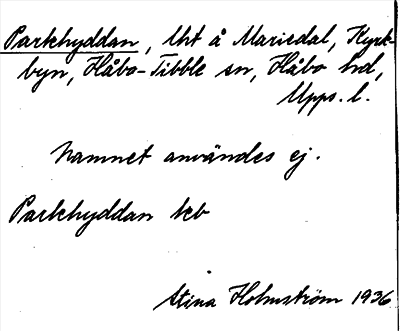 Parkhyddan, lht å Mariedal, Kyrk-
byn, Håbo-Tibble sn, Håbo hd,
Upps. l.
Namnet användes ej.
Parkhyddan kb
Stina Holmström 1936